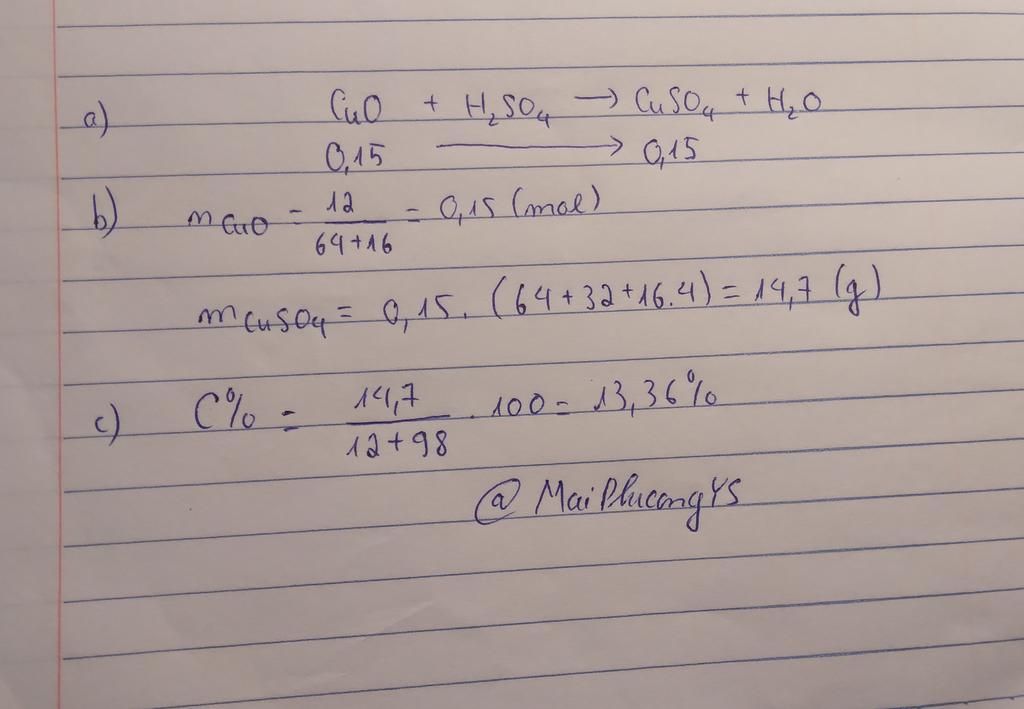 a) CuO + H₂SO₄ → CuSO₄ + H₂O
0,15 → 0,15
b) nCuO = 12/(64+16) = 0,15 (mol)
mCuSO₄ = 0,15. (64+32+16.4) = 14,7 (g)
c) C% = 14,7/(12+98) . 100 = 13,36%
@MaiPhuongYS